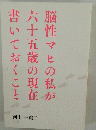 脳性マヒの私が
六十五歳の現在
書いておくこと